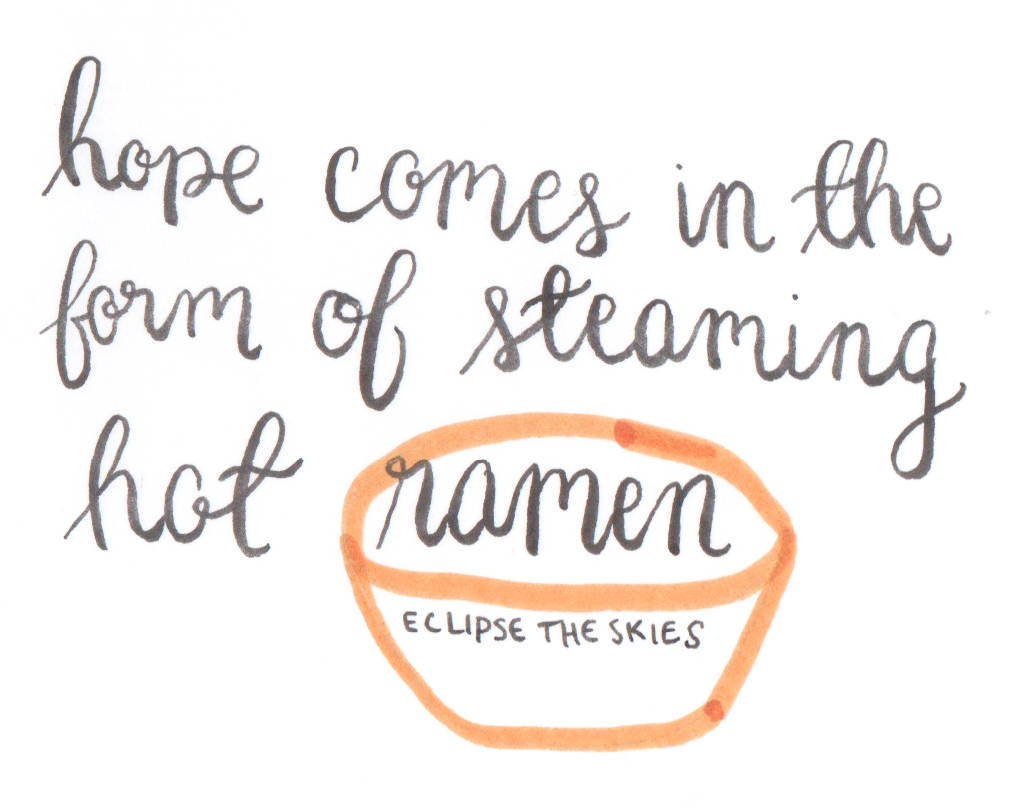 hope comes in the
form of steaming
hot ramen
ECLIPSE THE SKIES